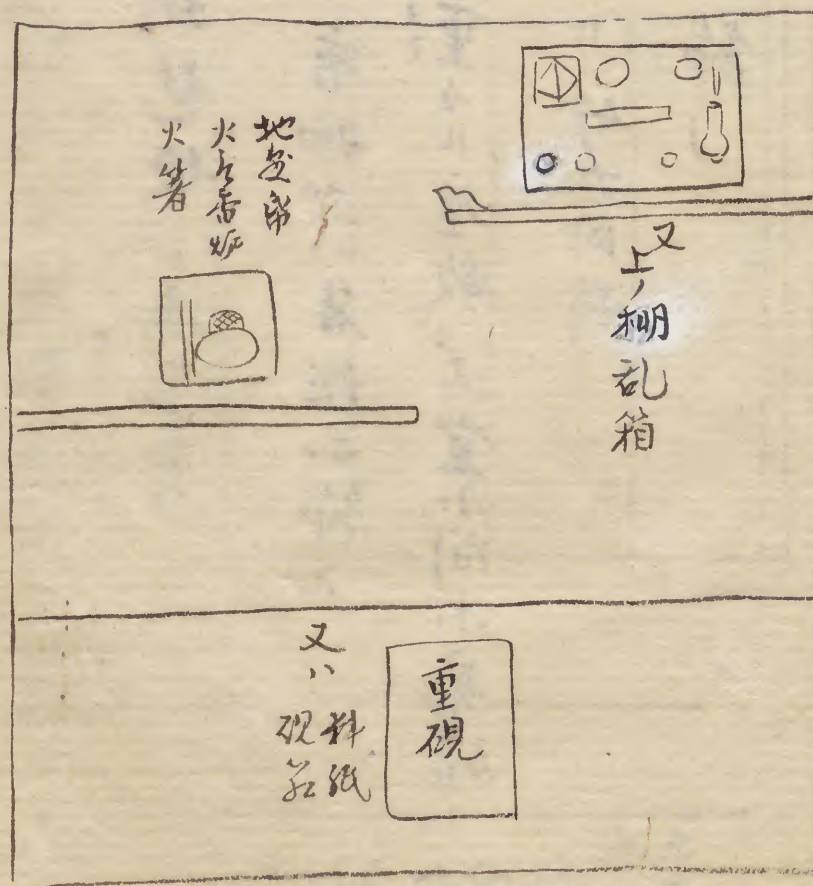 又
上ノ棚乱箱
地
火取香炉
火箸
重硯
又ハ
料紙
硯箱